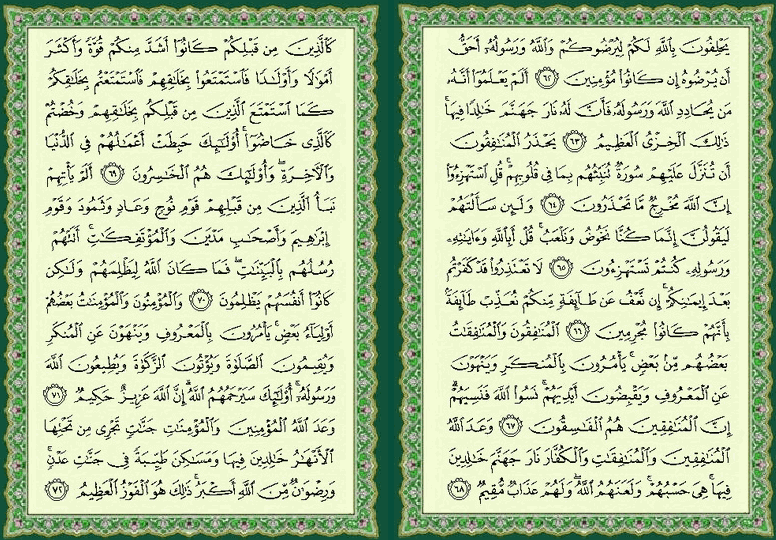 يَحْلِفُونَ بِٱللَّهِ لَكُمْ لِيُرْضُوكُمْ وَٱللَّهُ وَرَسُولُهُۥٓ أَحَقُّ
أَن يُرْضُوهُ إِن كَانُوا۟ مُؤْمِنِينَ ٦٢ أَلَمْ يَعْلَمُوٓا۟ أَنَّهُۥ
مَن يُحَادِدِ ٱللَّهَ وَرَسُولَهُۥ فَأَنَّ لَهُۥ نَارَ جَهَنَّمَ خَٰلِدًا فِيهَا ۚ
ذَٰلِكَ ٱلْخِزْىُ ٱلْعَظِيمُ ٦٣ يَحْذَرُ ٱلْمُنَٰفِقُونَ
أَن تُنَزَّلَ عَلَيْهِمْ سُورَةٌ تُنَبِّئُهُم بِمَا فِى قُلُوبِهِمْ ۚ قُلِ ٱسْتَهْزِءُوٓا۟
إِنَّ ٱللَّهَ مُخْرِجٌ مَّا تَحْذَرُونَ ٦٤ وَلَئِن سَأَلْتَهُمْ
لَيَقُولُنَّ إِنَّمَا كُنَّا نَخُوضُ وَنَلْعَبُ ۚ قُلْ أَبِٱللَّهِ وَءَايَٰتِهِۦ
وَرَسُولِهِۦ كُنتُمْ تَسْتَهْزِءُونَ ٦٥ لَا تَعْتَذِرُوا۟ قَدْ كَفَرْتُم
بَعْدَ إِيمَٰنِكُمْ ۚ إِن نَّعْفُ عَن طَآئِفَةٍ مِّنكُمْ نُعَذِّبْ طَآئِفَةًۢ
بِأَنَّهُمْ كَانُوا۟ مُجْرِمِينَ ٦٦ ٱلْمُنَٰفِقُونَ وَٱلْمُنَٰفِقَٰتُ
بَعْضُهُم مِّنۢ بَعْضٍ ۚ يَأْمُرُونَ بِٱلْمُنكَرِ وَيَنْهَوْنَ
عَنِ ٱلْمَعْرُوفِ وَيَقْبِضُونَ أَيْدِيَهُمْ ۚ نَسُوا۟ ٱللَّهَ فَنَسِيَهُمْ ۗ
إِنَّ ٱلْمُنَٰفِقِينَ هُمُ ٱلْفَٰسِقُونَ ٦٧ وَعَدَ ٱللَّهُ
ٱلْمُنَٰفِقِينَ وَٱلْمُنَٰفِقَٰتِ وَٱلْكُفَّارَ نَارَ جَهَنَّمَ خَٰلِدِينَ
فِيهَا ۚ هِىَ حَسْبُهُمْ ۚ وَلَعَنَهُمُ ٱللَّهُ ۖ وَلَهُمْ عَذَابٌ مُّقِيمٌ ٦٨
كَٱلَّذِينَ مِن قَبْلِكُمْ كَانُوٓا۟ أَشَدَّ مِنكُمْ قُوَّةً وَأَكْثَرَ
أَمْوَٰلًا وَأَوْلَٰدًا فَٱسْتَمْتَعُوا۟ بِخَلَٰقِهِمْ فَٱسْتَمْتَعْتُم بِخَلَٰقِكُمْ
كَمَا ٱسْتَمْتَعَ ٱلَّذِينَ مِن قَبْلِكُم بِخَلَٰقِهِمْ وَخُضْتُمْ
كَٱلَّذِى خَاضُوٓا۟ ۚ أُو۟لَٰٓئِكَ حَبِطَتْ أَعْمَٰلُهُمْ فِى ٱلدُّنْيَا
وَٱلْءَاخِرَةِ ۖ وَأُو۟لَٰٓئِكَ هُمُ ٱلْخَٰسِرُونَ ٦٩ أَلَمْ يَأْتِهِمْ
نَبَأُ ٱلَّذِينَ مِن قَبْلِهِمْ قَوْمِ نُوحٍ وَعَادٍ وَثَمُودَ وَقَوْمِ
إِبْرَٰهِيمَ وَأَصْحَٰبِ مَدْيَنَ وَٱلْمُؤْتَفِكَٰتِ ۚ أَتَتْهُمْ
رُسُلُهُم بِٱلْبَيِّنَٰتِ ۖ فَمَا كَانَ ٱللَّهُ لِيَظْلِمَهُمْ وَلَٰكِن
كَانُوٓا۟ أَنفُسَهُمْ يَظْلِمُونَ ٧٠ وَٱلْمُؤْمِنُونَ وَٱلْمُؤْمِنَٰتُ بَعْضُهُمْ
أَوْلِيَآءُ بَعْضٍ ۚ يَأْمُرُونَ بِٱلْمَعْرُوفِ وَيَنْهَوْنَ عَنِ ٱلْمُنكَرِ
وَيُقِيمُونَ ٱلصَّلَوٰةَ وَيُؤْتُونَ ٱلزَّكَوٰةَ وَيُطِيعُونَ ٱللَّهَ
وَرَسُولَهُۥٓ ۚ أُو۟لَٰٓئِكَ سَيَرْحَمُهُمُ ٱللَّهُ ۗ إِنَّ ٱللَّهَ عَزِيزٌ حَكِيمٌ ٧١
وَعَدَ ٱللَّهُ ٱلْمُؤْمِنِينَ وَٱلْمُؤْمِنَٰتِ جَنَّٰتٍ تَجْرِى مِن تَحْتِهَا
ٱلْأَنْهَٰرُ خَٰلِدِينَ فِيهَا وَمَسَٰكِنَ طَيِّبَةً فِى جَنَّٰتِ عَدْنٍ ۚ
وَرِضْوَٰنٌ مِّنَ ٱللَّهِ أَكْبَرُ ۚ ذَٰلِكَ هُوَ ٱلْفَوْزُ ٱلْعَظِيمُ ٧٢